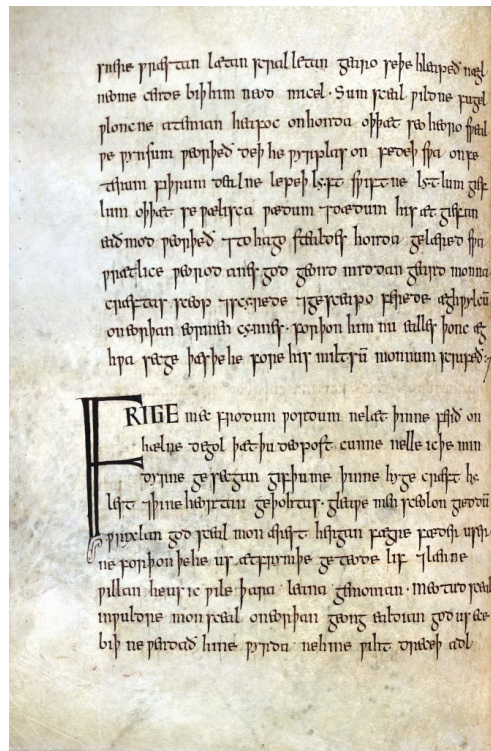 snere ƿræstan lætan scralletan gearo se þe hleapeð nægl
neome cende biþ him neod micel · Sum sceal ƿildne fugel
ƿloncne atemian heafoc on honda oþþæt seo heoro sƿeal
ƿe ƿynsum ƿeorþeð deþ he ƿyrplas on fedeþ sƿa on fe
terum fiþrum dealne lepeþ lyft sƿiftne lytlum gief
lum oþþæt se ƿælisca ƿædum ⁊ dædum his æt giefan
eað mod ƿeorþeð ⁊ to hago stealdes honda gelæred sƿa
ƿrætlice ƿeorod nergend geond middan geard monna
cræftas sceop ⁊ scyrede ⁊ ge sceapo ferede æghƿylcū
on eorþan eormen cynnes · forþon him nu ealles þonc æg
hƿa secge þæs þe he fore his miltsū monnum scrifeð :7
FRIGE mec frodum ƿordum ne læt þinne ferð on
hælne degol þæt þu deopost cunne nelle ic þe min
dyrne ge secgan gif þu me þinne hyge cræft hy
lest ⁊ þine heortan geþohtas · gleaƿe men sceolon gieddū
ƿrixlan god sceal mon ærest hergan fægre fæder user
ne forþon þe he us æt frymþe geteode lif ⁊ lænne
ƿillan he usic ƿile þara leana gemonian · meotud sceal
in ƿuldre mon sceal on eorþan geong ealdian god us ece
biþ ne ƿendað hine ƿyrda ne hine ƿiht dreceþ adl